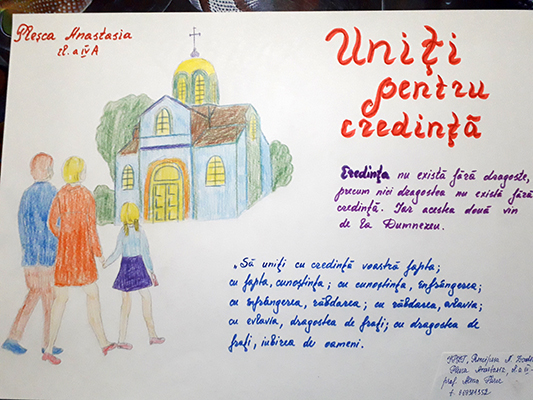 Pleșca Anastasia
cl. a IV A
Uniți
pentru
credință
Credința nu există fără dragoste,
precum nici dragostea nu există fără
credință. Iar acestea două vin
de la Dumnezeu.
„Să uniți cu credință voastră fapta;
cu fapta, cunoștința; cu cunoștința, înfrângerea;
cu înfrângerea, răbdarea; cu răbdarea, evlavia;
cu evlavia, dragostea de frați; cu dragostea de
frați, iubirea de oameni.
Pleșca Anastasia, cl. a IV-
prof.